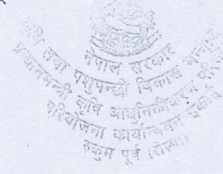 नेपाल सरकार
कृषि तथा पशुपन्छी विकास मन्त्रालय
प्रधानमन्त्री कृषि आधुनिकीकरण परियोजना
परियोजना कार्यान्वयन एकाई
रुकुम पूर्व (रोल्पा)